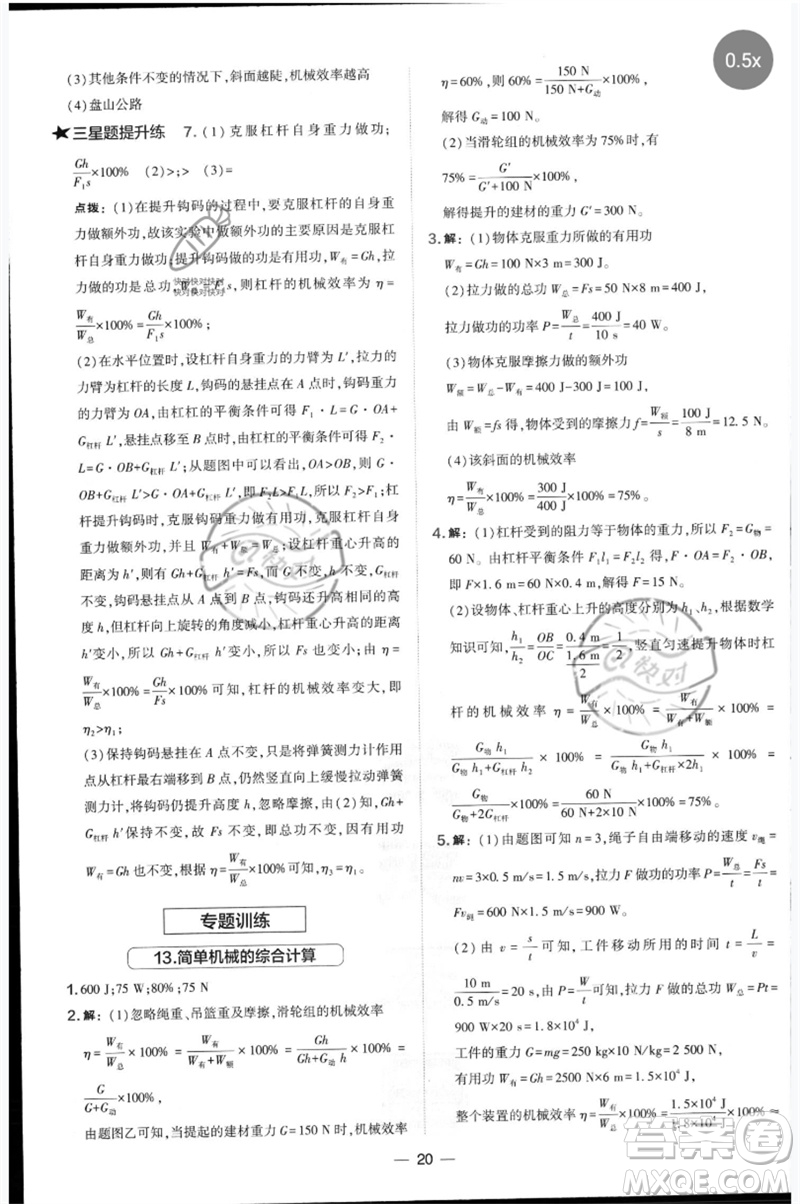 0.5x
(3)其他条件不变的情况下,斜面越陡,机械效率越高
(4)盘山公路
三星题提升练 7.(1)克服杠杆自身重力做功;
Gh/F₁s×100% (2)>;> (3)=
点拨:(1)在提升钩码的过程中,要克服杠杆的自身重
力做额外功,故该实验中做额外功的主要原因是克服
杠杆自身重力做功;提升钩码做的功是有用功,拉
力做的功是总功,W总=F₁s,则杠杆的机械效率为 η=
W有/W总×100%=Gh/F₁s×100%;
(2)在水平位置时,设杠杆自身重力的力臂为 L′,拉力的
力臂为杠杆的长度 L,钩码的悬挂点在 A 点时,钩码重力
的力臂为 OA,由杠杆的平衡条件可得 F₁·L=G·OA+
G杠杆 L′,悬挂点移至 B 点时,由杠杆的平衡条件可得 F₂·
L=G·OB+G杠杆 L′;从题图中可以看出 OB>OA,所以
G·OB+G杠杆 L′>G·OA+G杠杆 L′,即 F₂L>F₁L,所以 F₂>F₁;
杠杆提升钩码时,克服钩码重力做有用功,克服杠杆自
重做额外功,并且 W有+W额=W总;设杠杆重心升高的
距离为 h′,则有,Gh+G杠杆 h′=Fs,而 G 不变,G杠杆
不变,钩码从 A 点到 B 点,钩码还升高相同的高
度 h,但杠杆向上旋转的角度减小,杠杆重心升高的距离
h′变小,所以 Gh+G杠杆 h′变小,所以 Fs 也变小;由 η=
W有/W总×100%=Gh/Fs×100%可知,杠杆的机械效率变大,即
η₂>η₁;
(3)保持钩码悬挂在 A 点不变,只是将弹簧测力计
从杠杆最右端移到 B 点,仍竖直向上缓慢拉动弹簧
测力计,将钩码仍提升高度 h,忽略摩擦,由(2)知,Gh+
G杠杆 h′保持不变,故 Fs 不变,即总功不变,因有用功
W有=Gh 也不变,根据 η=W有/W总×100%可知,η₃=η₁。
专题训练
13.简单机械的综合计算
1.600 J;75 W;80%;75 N
2.解:(1)忽略绳重、吊篮重及摩擦,滑轮组的机械效率
η=W有/W总×100%=W有/(W有+W额)×100%=Gh/(Gh+G动 h)×100%=
G/(G+G动)×100%,
由题图乙可知,当提起的建材重力 G=150 N时,机械效率
η=60%,则 60%=150 N/(150 N+G动)×100%,
解得 G动=100 N。
(2)当滑轮组的机械效率为 75%时,有
75%=G′/(G′+100 N)×100%,
解得提升的建材的重力 G′=300 N。
3.解:(1)物体克服重力所做的有用功
W有=Gh=100 N×3 m=300 J。
(2)拉力做的总功 W总=Fs=50 N×8 m=400 J,
拉力做功的功率 P=W总/t=400 J/10 s=40 W。
(3)物体克服摩擦力做的额外功
W额=W总-W有=400 J-300 J=100 J,
由 W额=fs 得,物体受到的摩擦力 f=W额/s=100 J/8 m=12.5 N。
(4)该斜面的机械效率
η=W有/W总×100%=300 J/400 J×100%=75%。
4.解:(1)杠杆受到的阻力等于物体的重力,所以 F=G物=
60 N。由杠杆平衡条件 F₁l₁=F₂l₂得,F·OA=F·OB,
即 F×1.6 m=60 N×0.4 m,解得 F=15 N。
(2)设物体、杠杆重心上升的高度分别为 h₁、h₂,根据数学
知识可知,h₁/h₂=OB/OC=0.4 m/(1.6 m/2)=1/2,竖直匀速提升物体时杠
杆的机械效率 η=W有/W总×100%=W有/(W有+W额)×100%=
G物 h₁/(G物 h₁+G杠杆 h₂)×100%=G物 h₁/(G物 h₁+G杠杆×2h₁)×100%=
G物/(G物+2G杠杆)×100%=60 N/(60 N+2×10 N)×100%=75%。
5.解:(1)由题图可知 n=3,绳子自由端移动的速度 v绳=
nv=3×0.5 m/s=1.5 m/s,拉力 F 做功的功率 P=W总/t=Fs/t=
Fv绳=600 N×1.5 m/s=900 W。
(2)由 v=s/t 可知,工件移动所用的时间 t=L/v=
10 m/0.5 m/s=20 s,由 P=W/t可知,拉力 F 做的总功 W总=Pt=
900 W×20 s=1.8×10⁴ J,
工件的重力 G=mg=250 kg×10 N/kg=2 500 N,
有用功 W有=Gh=2500 N×6 m=1.5×10⁴ J,
整个装置的机械效率 η=W有/W总×100%=1.5×10⁴ J/1.8×10⁴ J×100%≈
20
快对
答案圈
MXQE.COM